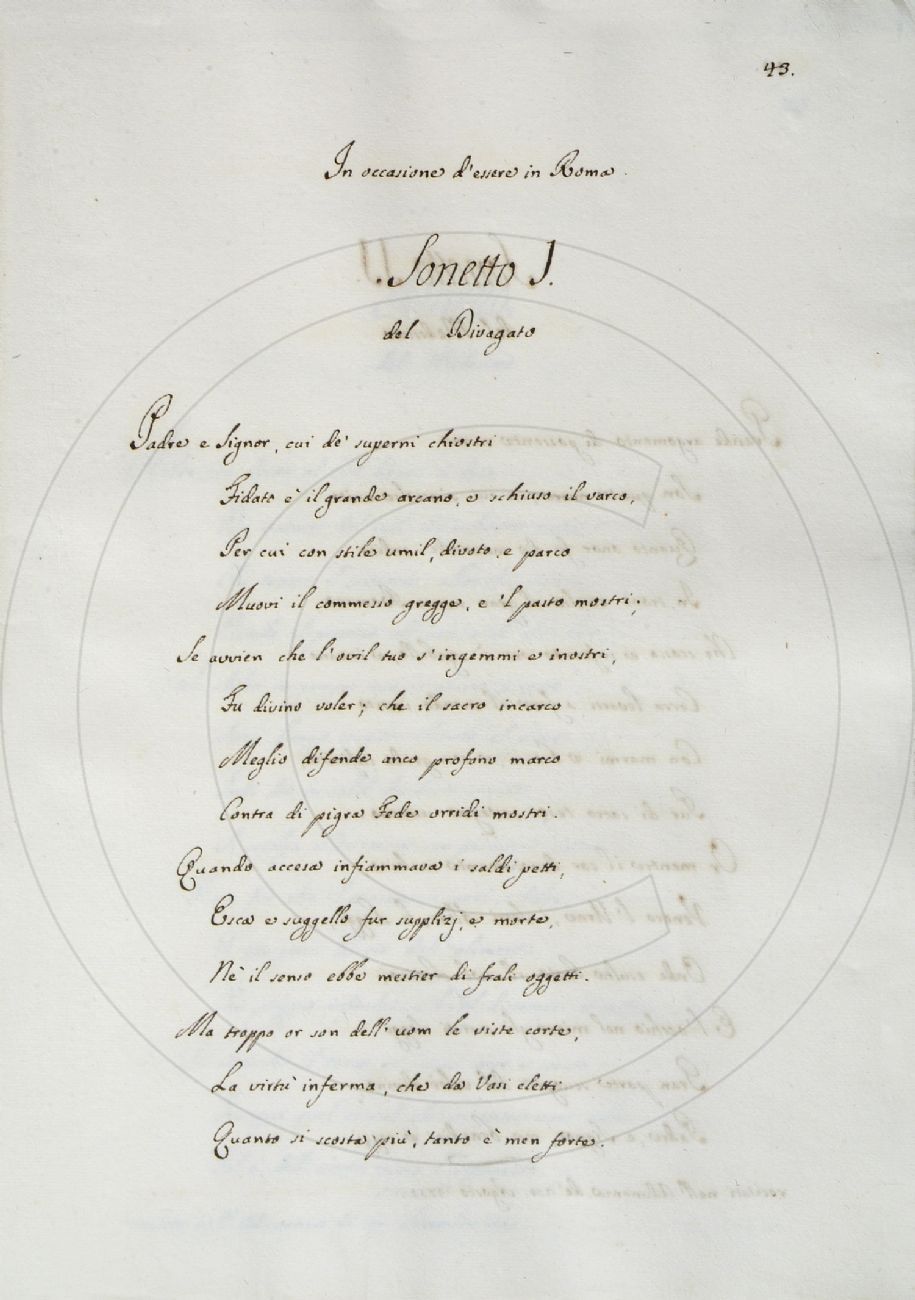 43.
In occasione d'essere in Roma.
Sonetto I.
del Divagato
Padre e Signor, cui de' superni chiostri
Fidato è il grande arcano, e schiuso il varco,
Per cui con stile umil, divoto, e parco
Muovi il commesso gregge, e 'l pasto mostri;
Se avvien che l'ovil tuo s'ingemmi e inostri,
Fu divino voler; che il sacro incarco
Meglio difende anco profono marco
Contra di pigra Fede orridi mostri.
Quando accesa infiammava i saldi petti,
Esca e suggello fur supplizj, e morte,
Nè il senso ebbe mestier di frali oggetti.
Ma troppo or son dell'uom le viste corte,
La virtù inferma, che da Vasi eletti
Quanto si scosta più, tanto è men forte.